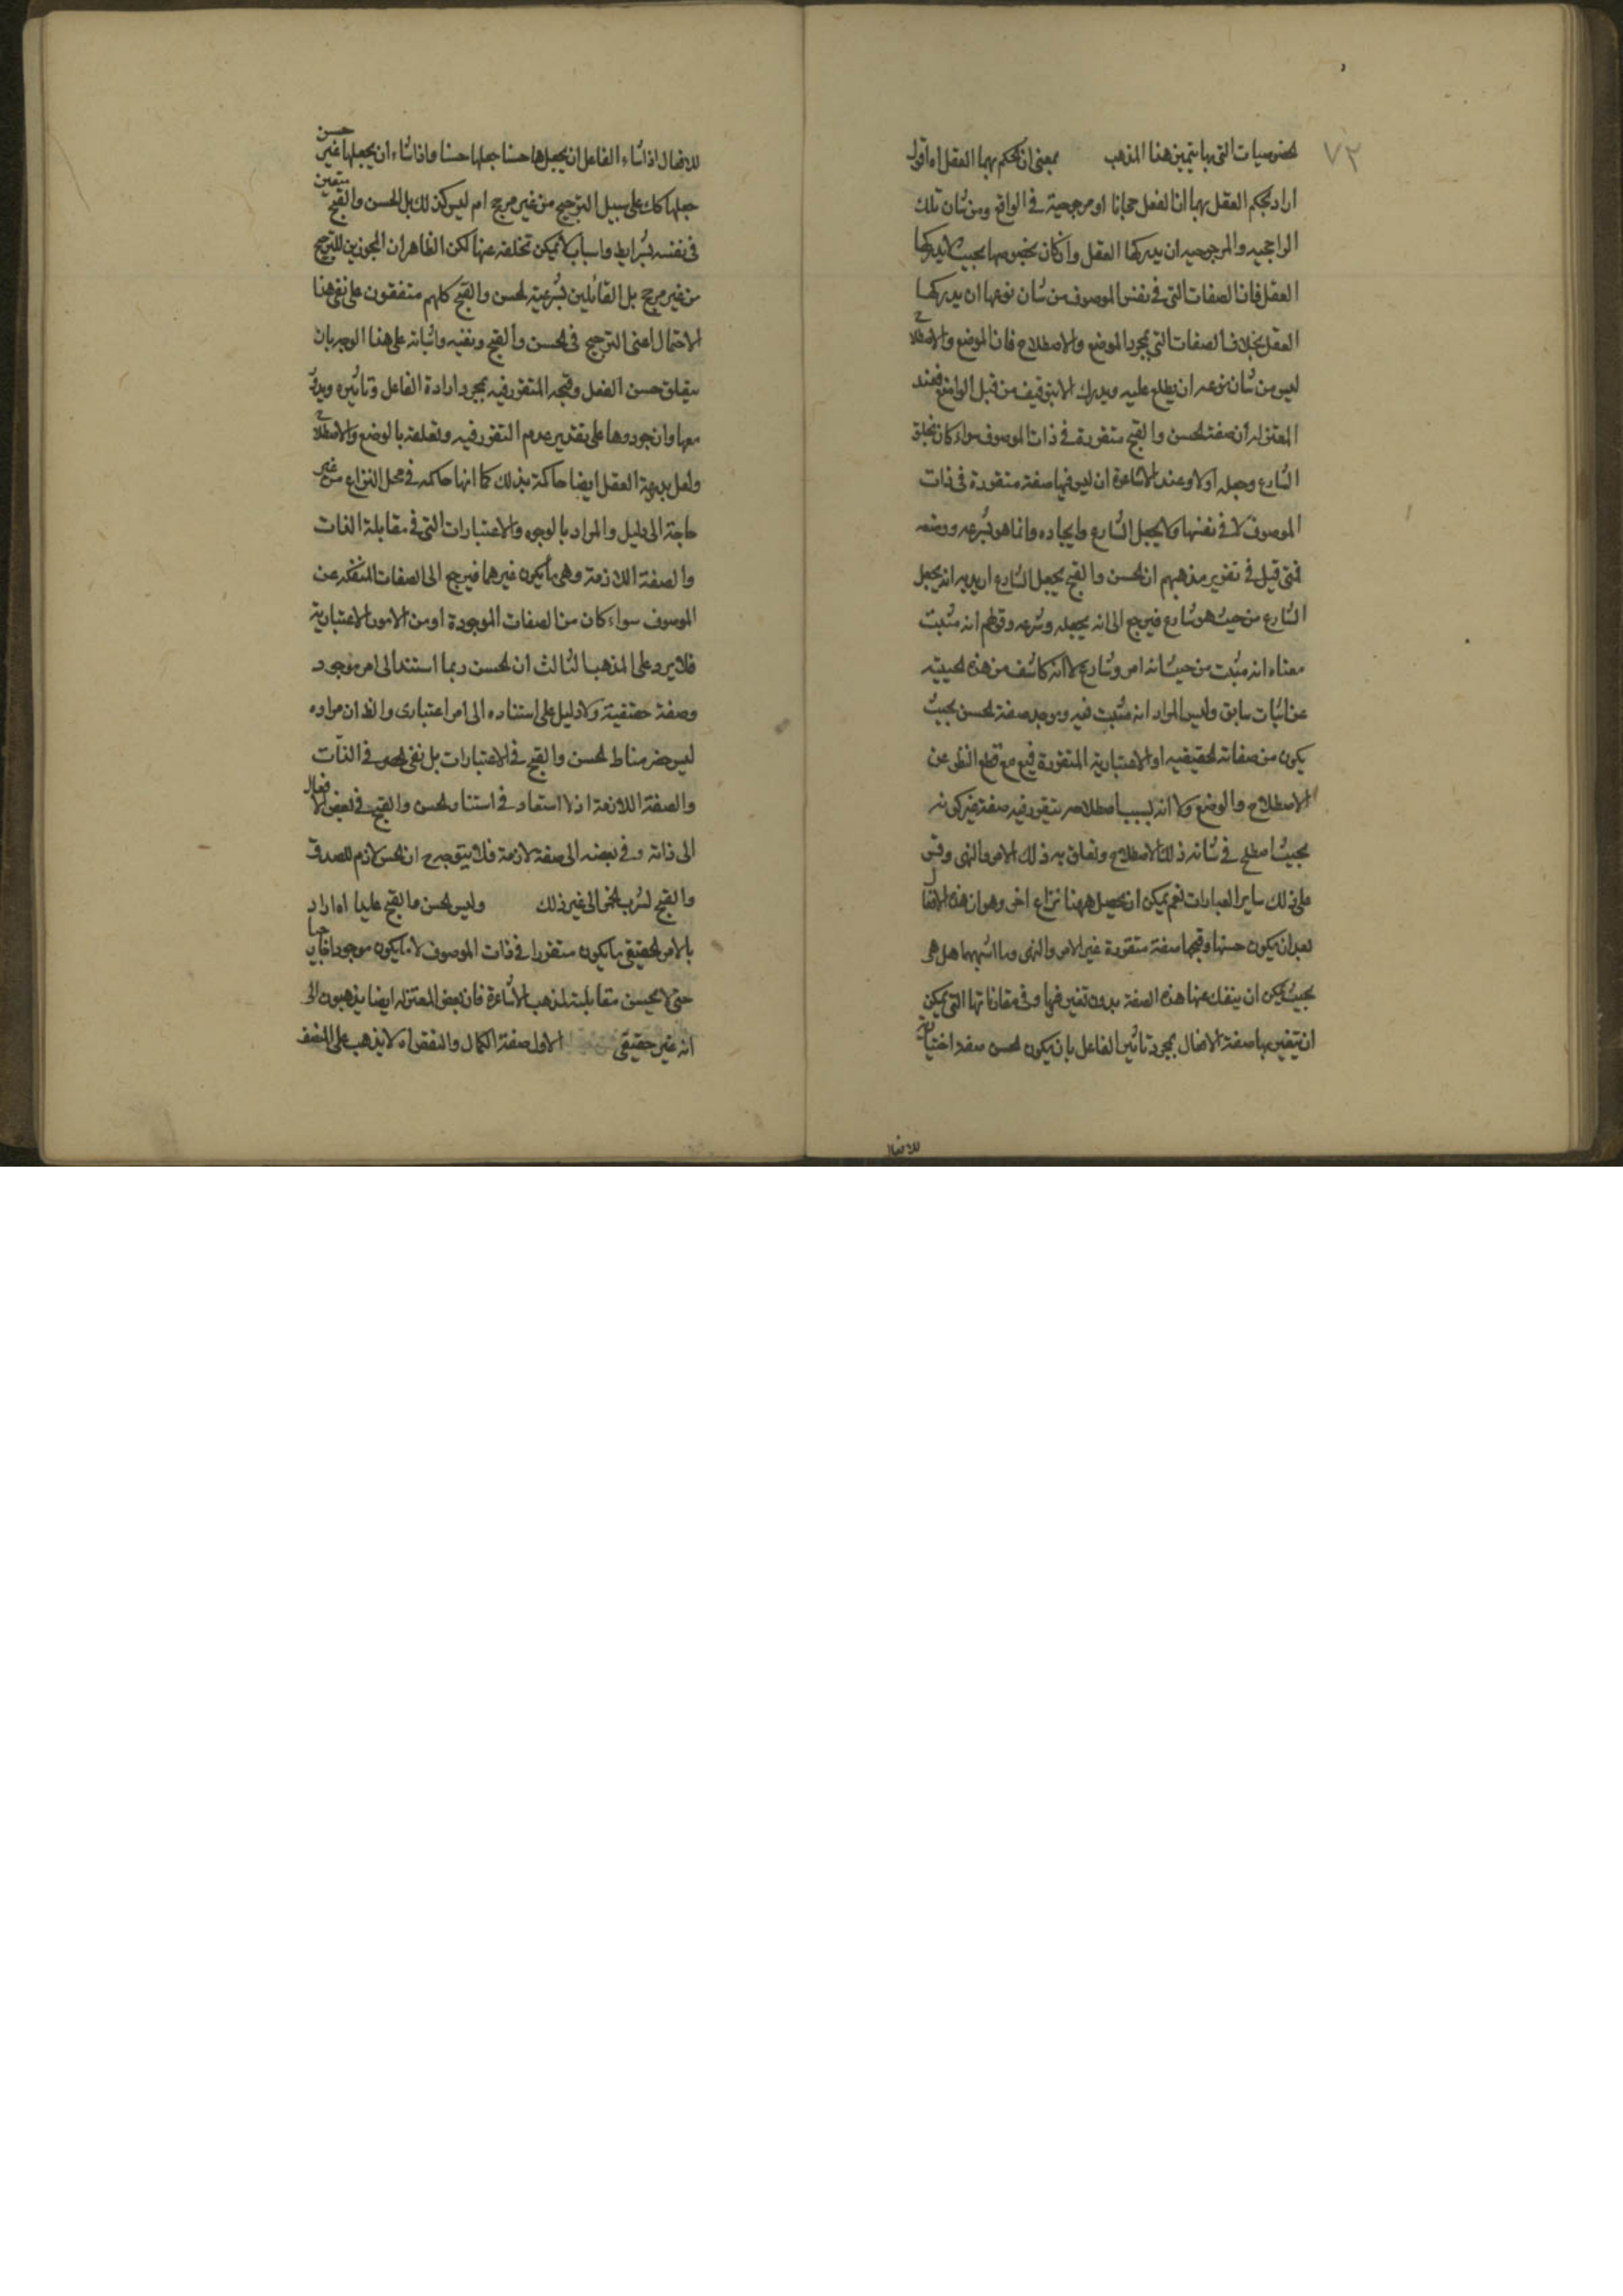 ٧٣
لخصوصيات التى بها يتميز هذا المذهب بمعنى ان يحكم بهما العقل اه اقول
اراد بحكم العقل بهما ان الفعل رجحانا او مرجوحية فى الواقع ومن شان تلك
الراجحيه والمرجوحيه ان يدركها العقل وان كان بخصوصها بحيث لا يدركها
العقل فان الصفات التى فى نفس الموصوف من شان نوعها ان يدركها
العقل بخلاف الصفات التى بمجرد الموضع والاصطلاح فان الموضع والاصطلاح
ليس من شان نوعه ان يطلع عليه ويدرك الا بتوقيف من قبل الواضع فعند
المعتزله ان صفة لحسن والقبح متقررة فى ذات الموصوف سواء كان بخلق
الشارع وجعله اولا وعند الاشاعرة ان ليس فيها صفة متقررة فى ذات
الموصوف لا فى نفسها ولا بجعل الشارع وايجاده وانما هو بشرعه ووضعه
فمتى قيل فى تقرير مذهبهم ان لحسن والقبح بجعل الشارع اريد به انه بجعل
الشارع من حيث هو شارع فيرجع الى انه بجعله وشرعه وقولهم انه مثبت
معناه انه مثبت من حيث انه امر وشارع لا انه كاشف من هذه لحيثيه
عن اثبات سابق وليس المراد انه مثبت فيه وموجد صفة لحسن بحيث
يكون من صفاته لحقيقيه او الاعتبارية المتقررة فيه مع قطع النظر عن
الاصطلاح والوضع ولا انه بسبب اصطلاحه يتقرر فيه صفة غير كونه
بحيث اصطلح فى شانه ذلك الاصطلاح وتعلق به ذلك الامر والنهى وقس
على ذلك ساير العبارات نعم يمكن ان يحصل ههنا نزاع اخر وهو ان هذه الافعال
بعد ان يكون حسنها وقبحها صفة متقررة غير الامر والنهى وما اشبههما هل هى
بحيث يمكن ان ينفك عنها هذه الصفة بدون تغير فيها وفى مقارناتها التى يمكن
ان يتغير بها صفة الافعال بمجرد تاثير الفاعل بان يكون لحسن صفة اختيارية
للافعال
للافعال اذا شاء الفاعل ان يجعلها حسنا جعلها حسنا واذا شاء ان يجعلها غير حسن
جعلها كك على سبيل الترجيح من غير مرجح ام ليس كذلك بل الحسن والقبح متعين
فى نفسه بشرايط واسباب لا يمكن تخلفه عنها لكن الظاهر ان المجوزين للترجيح
من غير مرجح بل القائلين بشرعية لحسن والقبح كلهم متفقون على نفى هذا
الاحتمال اعنى الترجيح فى لحسن والقبح ونفيه واثباته على هذا الوجه بان
يتعلق حسن الفعل وقبحه المتقرر فيه بمجرد ارادة الفاعل وتاثيره
معها وان جوزوها على تقدير عدم التقرر فيه وتعلقه بالوضع والاصطلاح
ولعل بديهة العقل ايضا حاكمة بذلك كما انها حاكمه فى محل النزاع من غير
حاجة الى دليل والمراد بالوجوه والاعتبارات التى فى مقابلة الذات
والصفة اللازمة وهى ما يكون غيرهما فيرجع الى الصفات المنفكه عن
الموصوف سواء كان من الصفات الموجودة او من الامور الاعتبارية
فلا يرد على المذهب الثالث ان لحسن ربما استند الى امر موجود
وصفة حقيقية ولا دليل على استناده الى امر اعتبارى والظ ان مراده
ليس حصر مناط لحسن والقبح فى الاعتبارات بل نفى لحصر فى الذات
والصفة اللازمة اذ لا استبعاد فى استناد لحسن والقبح فى بعض الافعال
الى ذاته وفى بعضه الى صفة لازمة فلا يتوجه ح ان لحسن لازم للصدق
والقبح لشرب لخمر الى غير ذلك وليس لحسن ما القبح عليا اه اراد
بالامر لحقيقى ما يكون متقررا فى ذات الموصوف لا ما يكون موجودا خارجيا
حتى لا يحسن مقابلته لمذهب الاشاعرة فان بعض المعتزله ايضا يذهبون الى
انه غير حقيقى الاول صفة الكمال والنقص اه لا يذهب على المنصف